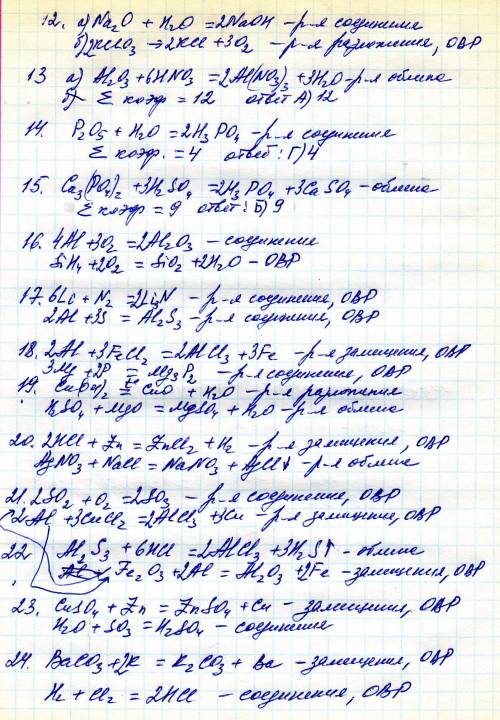 12. а) Na₂O + H₂O = 2NaOH – р-я соединения
б) 2KClO₃ → 2KCl + 3O₂ – р-я разложения, ОВР
13 а) Al₂O₃ + 6HNO₃ = 2Al(NO₃)₃ + 3H₂O – р-я обмена
б) Σ коэф = 12 ответ А) 12
14. P₂O₅ + H₂O = 2H₃PO₄ – р-я соединения
Σ коэф. = 4 ответ: Г) 4
15. Ca₃(PO₄)₂ + 3H₂SO₄ = 2H₃PO₄ + 3CaSO₄ – обмена
Σ коэф = 9 ответ: Б) 9
16. 4Al + 3O₂ = 2Al₂O₃ – соединение
SiH₄ + 2O₂ = SiO₂ + 2H₂O – ОВР
17. 6Li + N₂ = 2Li₃N – р-я соединение, ОВР
2Al + 3S = Al₂S₃ – р-я соединение, ОВР
18. 2Al + 3FeCl₂ = 2AlCl₃ + 3Fe – р-я замещения, ОВР
3Mg + 2P = Mg₃P₂ – р-я соединение, ОВР
19. Cu(OH)₂ = CuO + H₂O – р-я разложения
H₂SO₄ + MgO = MgSO₄ + H₂O – р-я обмена
20. 2HCl + Zn = ZnCl₂ + H₂ – р-я замещения, ОВР
AgNO₃ + NaCl = NaNO₃ + AgCl↓ – р-я обмена
21. 2SO₂ + O₂ = 2SO₃ – р-я соединение, ОВР
2Al + 3CuCl₂ = 2AlCl₃ + 3Cu – р-я замещения, ОВР
22 Al₂S₃ + 6HCl = 2AlCl₃ + 3H₂S↑ – обмена
Fe₂O₃ + 2Al = Al₂O₃ + 2Fe – замещения, ОВР
23. CuSO₄ + Zn = ZnSO₄ + Cu – замещения, ОВР
H₂O + SO₃ = H₂SO₄ – соединения
24. BaCO₃ + 2K = K₂CO₃ + Ba – замещения, ОВР
H₂ + Cl₂ = 2HCl – соединение, ОВР